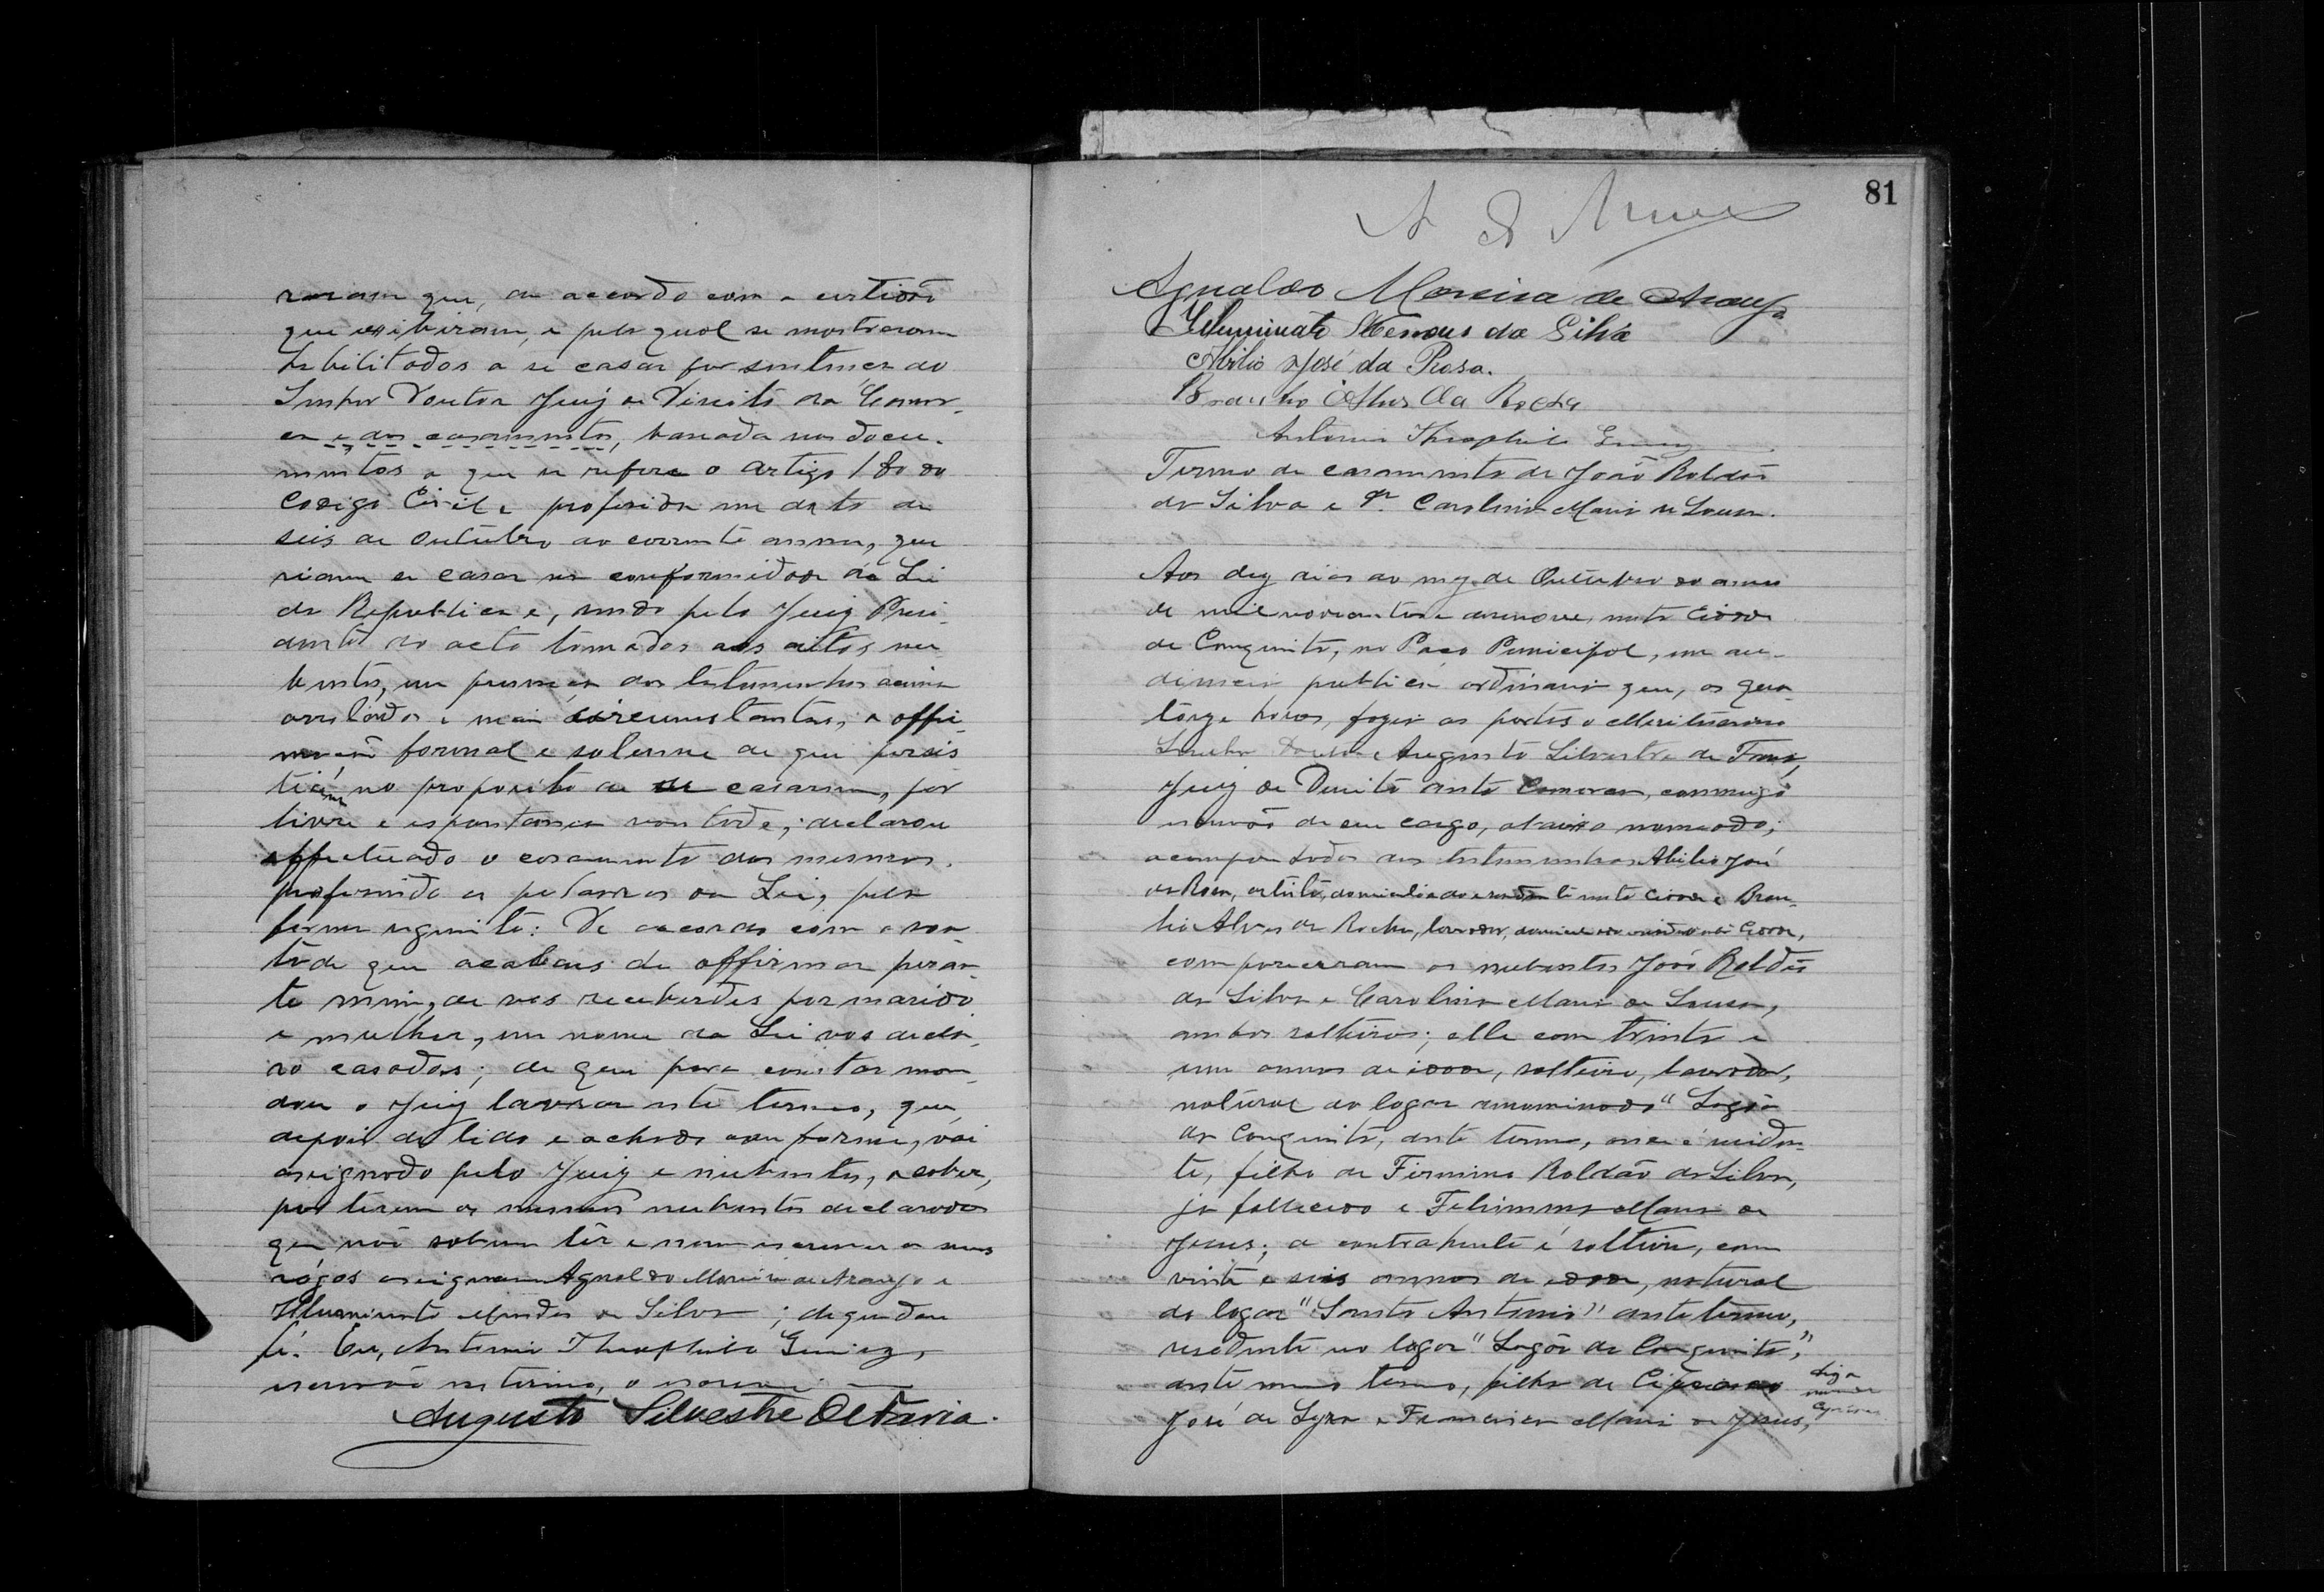 raram que, de accordo com a certidão
que exhibiram, e pela qual se mostraram
habilitados a se casar por sentença do
Senhor Doutor Juiz de Direito da Comar-
ca e dos casamentos, baseada nos docu-
mentos a que se refere o artigo 180 do
Codigo Civil e proferida em data de
seis de Outubro do corrente anno, que
riam se casar na conformidade da Lei
da Republica e, sendo pelo Juiz Presi-
dente do acto tomadas aos ditos nu-
bentes, em presença das testemunhas acima
arroladas e mais circumstantes, a affir-
mação formal e solemne de que persis
tiam no proposito de se casarem, por
livre e espontanea vontade, declarou
effectuado o casamento dos mesmos,
proferindo as palavras da Lei, pela
forma seguinte: De accordo com a von-
tade que acabais de affirmar peran-
te mim, de vos receberdes por marido
e mulher, em nome da Lei vos decla-
ro casados; de que para constar man-
dou o Juiz lavrar este termo, que,
depois de lido e achado conforme, vai
assignado pelo Juiz e nubentes, a saber,
por terem os mesmos nubentes declarado
que não sabem lêr e nem escrever a seus
rógos assignam Agnaldo Moreira de Araujo e
Illuminato Mendes da Silva; de que dou
fé. Eu, Antonio Theophilo
escrivão interino, o escrevi.
Augusto Silvestre de Faria.
81
Agnaldo Moreira de Araujo
Illuminato Mendes da Silva
Abilio José da Rosa.
Braulio Alves da Rocha
Antonio Theophilo
Termo de casamento de João Roldão
da Silva e D. Carolina Maria de Sousa.
Aos dez dias do mez de Outubro do anno
de mil novecentos e desenove, nesta Cidade
de Conquista, no Paço Municipal, em au-
diencia publica ordinaria que, as qua-
torze horas, fazia as portas o Meritissimo
Senhor Doutor Augusto Silvestre de Faria,
Juiz de Direito desta Comarca, commigo
escrivão de seu cargo, abaixo nomeado;
acompanhados das testemunhas Abilio José
da Rosa, artista, domiciliado e residente nesta Cidade e Brau-
lio Alves da Rocha, lavrador, nesta Cidade,
compareceram os nubentes João Roldão
da Silva e Carolina Maria de Sousa,
ambos solteiros; elle com trinta e
um annos de idade, solteiro, lavrador,
natural do logar denominado "Lagôa
da Conquista, deste termo, onde é residen-
te, filho de Firmino Roldão da Silva,
já fallecido e Maria de
Jesus; a contrahente é solteira, com
vinte e seis annos de edade, natural
do logar "Santo Antonio" deste termo,
residente no logar "Lagôa da Conquista",
deste mesmo termo, filha de Cipriano
diga
José de Lyra e Francisca Maria de Jesus,